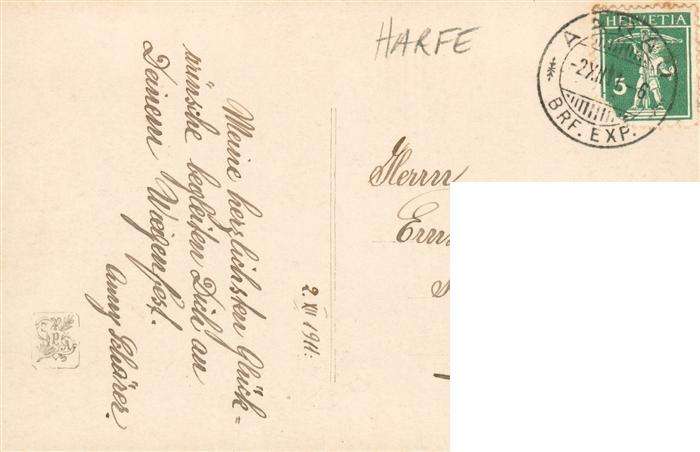 HARFE
HELVETIA
5
BRF. EXP.
Meine herzlichsten Glück=
wünsche begleiten Dich an
Deinem Wiegenfest.
Anny Schärer.
2. XII 1911.
Herrn